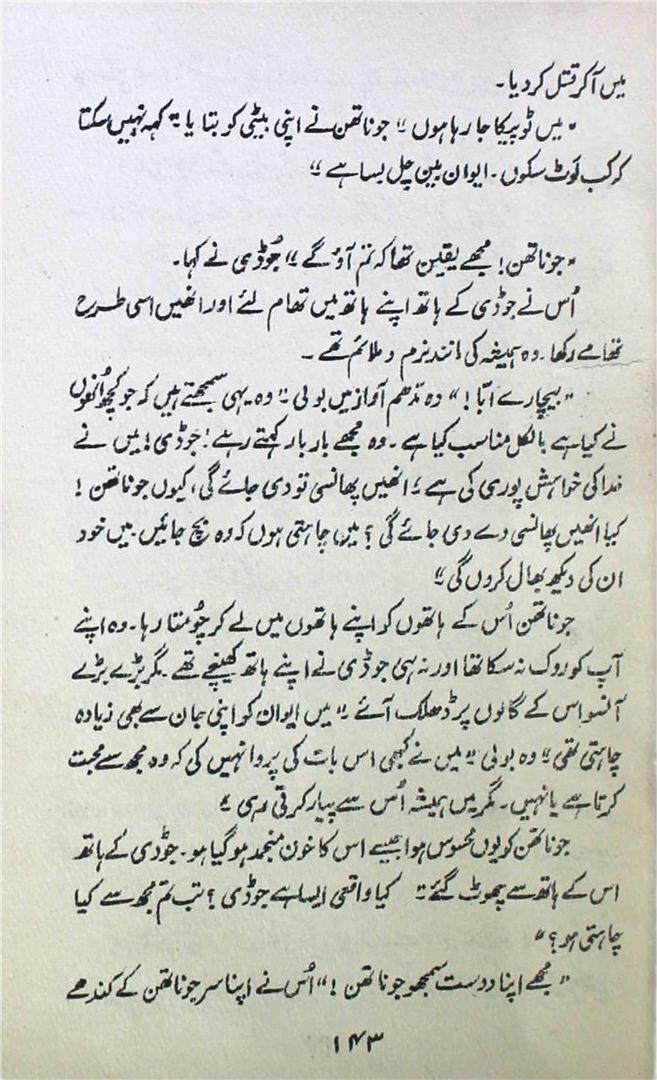 میں آکر قتل کر دیا۔
"میں ٹوپیکا جا رہا ہوں" جوناتھن نے اپنی بیٹی کو بتایا "کہہ نہیں سکتا
کہ کب لَوٹ سکوں۔ ایوان بین چل بسا ہے"
"جوناتھن! مجھے یقین تھا کہ تم آؤ گے" جُوڈی نے کہا۔
اُس نے جوڈی کے ہاتھ اپنے ہاتھ میں تھام لئے اور انھیں اسی طرح
تھامے رکھا۔ وہ ہمیشہ کی مانند نرم و ملائم تھے۔
"بیچارے ابّا!" وہ مدّھم آواز میں بولی "وہ یہی سمجھتے ہیں کہ جو کچھ اُنھوں
نے کیا ہے بالکل مناسب کیا ہے۔ وہ مجھے بار بار کہتے رہے! جوڈی! میں نے
خدا کی خواہش پوری کی ہے؛ انھیں پھانسی تو دی جائے گی، کیوں جوناتھن!
کیا انھیں پھانسی دے دی جائے گی؟ میں چاہتی ہوں کہ وہ بچ جائیں میں خود
ان کی دیکھ بھال کروں گی"
جوناتھن اُس کے ہاتھوں کو اپنے ہاتھوں میں لے کر چُومتا رہا۔ وہ اپنے
آپ کو روک نہ سکا تھا اور نہ ہی جوڈی نے اپنے ہاتھ کھینچے تھے۔ مگر بڑے بڑے
آنسو اس کے گالوں پر ڈھلک آئے "میں ایوان کو اپنی جان سے بھی زیادہ
چاہتی تھی" وہ بولی "میں نے کبھی اس بات کی پروا نہیں کی کہ وہ مجھ سے محبت
کرتا ہے یا نہیں۔ مگر میں ہمیشہ اُس سے پیار کرتی رہی"
جوناتھن کو یوں محسوس ہوا جیسے اس کا خون منجمد ہو گیا ہو۔ جوڈی کے ہاتھ
اس کے ہاتھ سے چھوٹ گئے "کیا واقعی ایسا ہے جوڈی؟ تب تم مجھ سے کیا
چاہتی ہو؟"
"مجھے اپنا دوست سمجھو جوناتھن!" اُس نے اپنا سر جوناتھن کے کندھے
۱۴۳